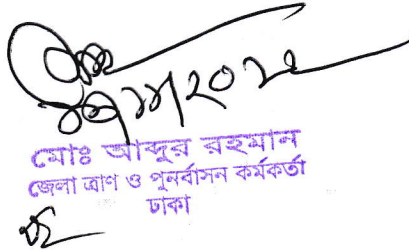 মোঃ আব্দুর রহমান
জেলা ত্রাণ ও পুনর্বাসন কর্মকর্তা
ঢাকা